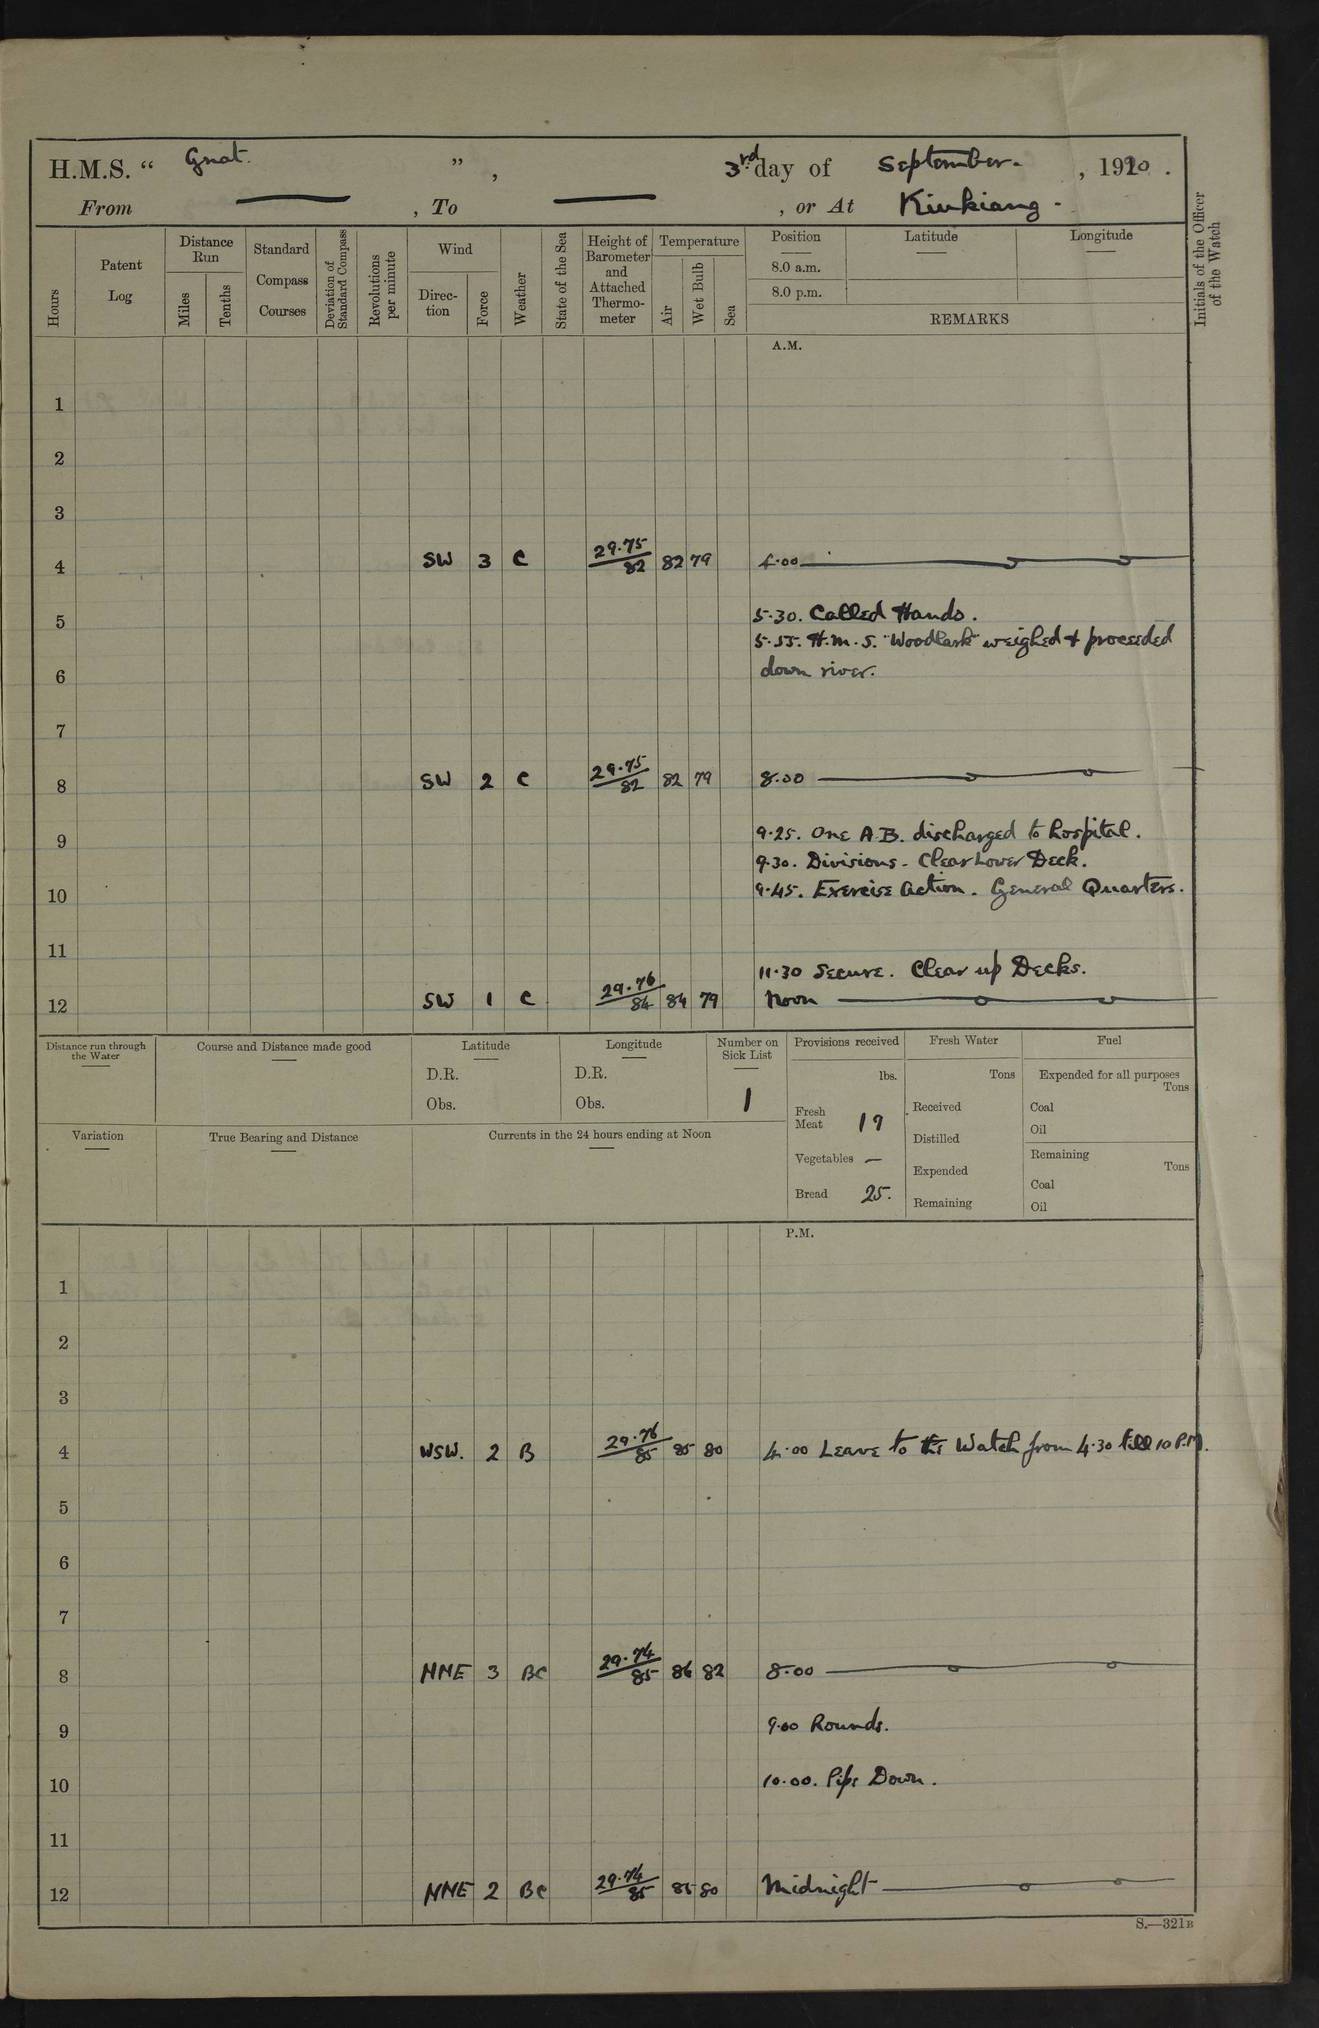 H.M.S. “ Gnat. ” , 3rd day of September. , 1920 .
From — , To — , or At Kiukiang -
Hours
Patent Log
Distance Run
Miles
Tenths
Standard Compass Courses
Deviation of Standard Compass
Revolutions per minute
Wind
Direc-tion
Force
Weather
State of the Sea
Height of Barometer and Attached Thermo-meter
Temperature
Air
Wet Bulb
Sea
Position
8.0 a.m.
8.0 p.m.
Latitude
Longitude
REMARKS
Initials of the Officer of the Watch
A.M.
1
2
3
4 SW 3 C 29.75/82 82 79 4.00
5 5.30. Called Hands.
5.55. H.M.S. "Woodlark" weighed & proceeded
6 down river.
7
8 SW 2 C 29.75/82 82 79 8.00
9 9.25. One A.B. discharged to hospital.
9.30. Divisions - Clear Lower Deck.
10 9.45. Exercise Action. General Quarters.
11 11.30 Secure. Clear up Decks.
12 SW 1 C 29.76/84 84 79 Noon
Distance run through the Water
Course and Distance made good
Latitude
D.R.
Obs.
Longitude
D.R.
Obs.
Number on Sick List
1
Provisions received
lbs.
Fresh Meat 19
Vegetables —
Bread 25.
Fresh Water
Tons
Received
Distilled
Expended
Remaining
Fuel
Expended for all purposes
Tons
Coal
Oil
Remaining
Tons
Coal
Oil
Variation
True Bearing and Distance
Currents in the 24 hours ending at Noon
P.M.
1
2
3
4 WSW. 2 B 29.76/85 85 80 4.00 Leave to the Watch from 4.30 till 10 P.M.
5
6
7
8 NNE 3 BC 29.74/85 86 82 8.00
9 9.00 Rounds.
10 10.00. Pipe Down.
11
12 NNE 2 BC 29.74/85 85 80 Midnight
S.—321B